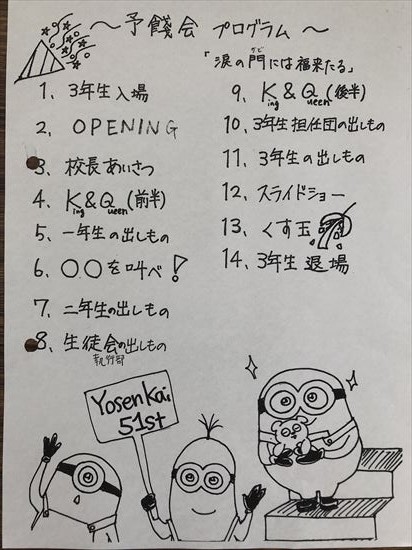 ～予餞会 プログラム～
「涙の門には福来たる」
1. 3年生入場
2. OPENING
3. 校長あいさつ
4. King & Queen (前半)
5. 一年生の出しもの
6. 〇〇を叫べ!
7. 二年生の出しもの
8. 生徒会の出しもの
執行部
9. King & Queen (後半)
10. 3年生担任団の出しもの
11. 3年生の出しもの
12. スライドショー
13. くす玉
14. 3年生退場
Yosenkai
51st